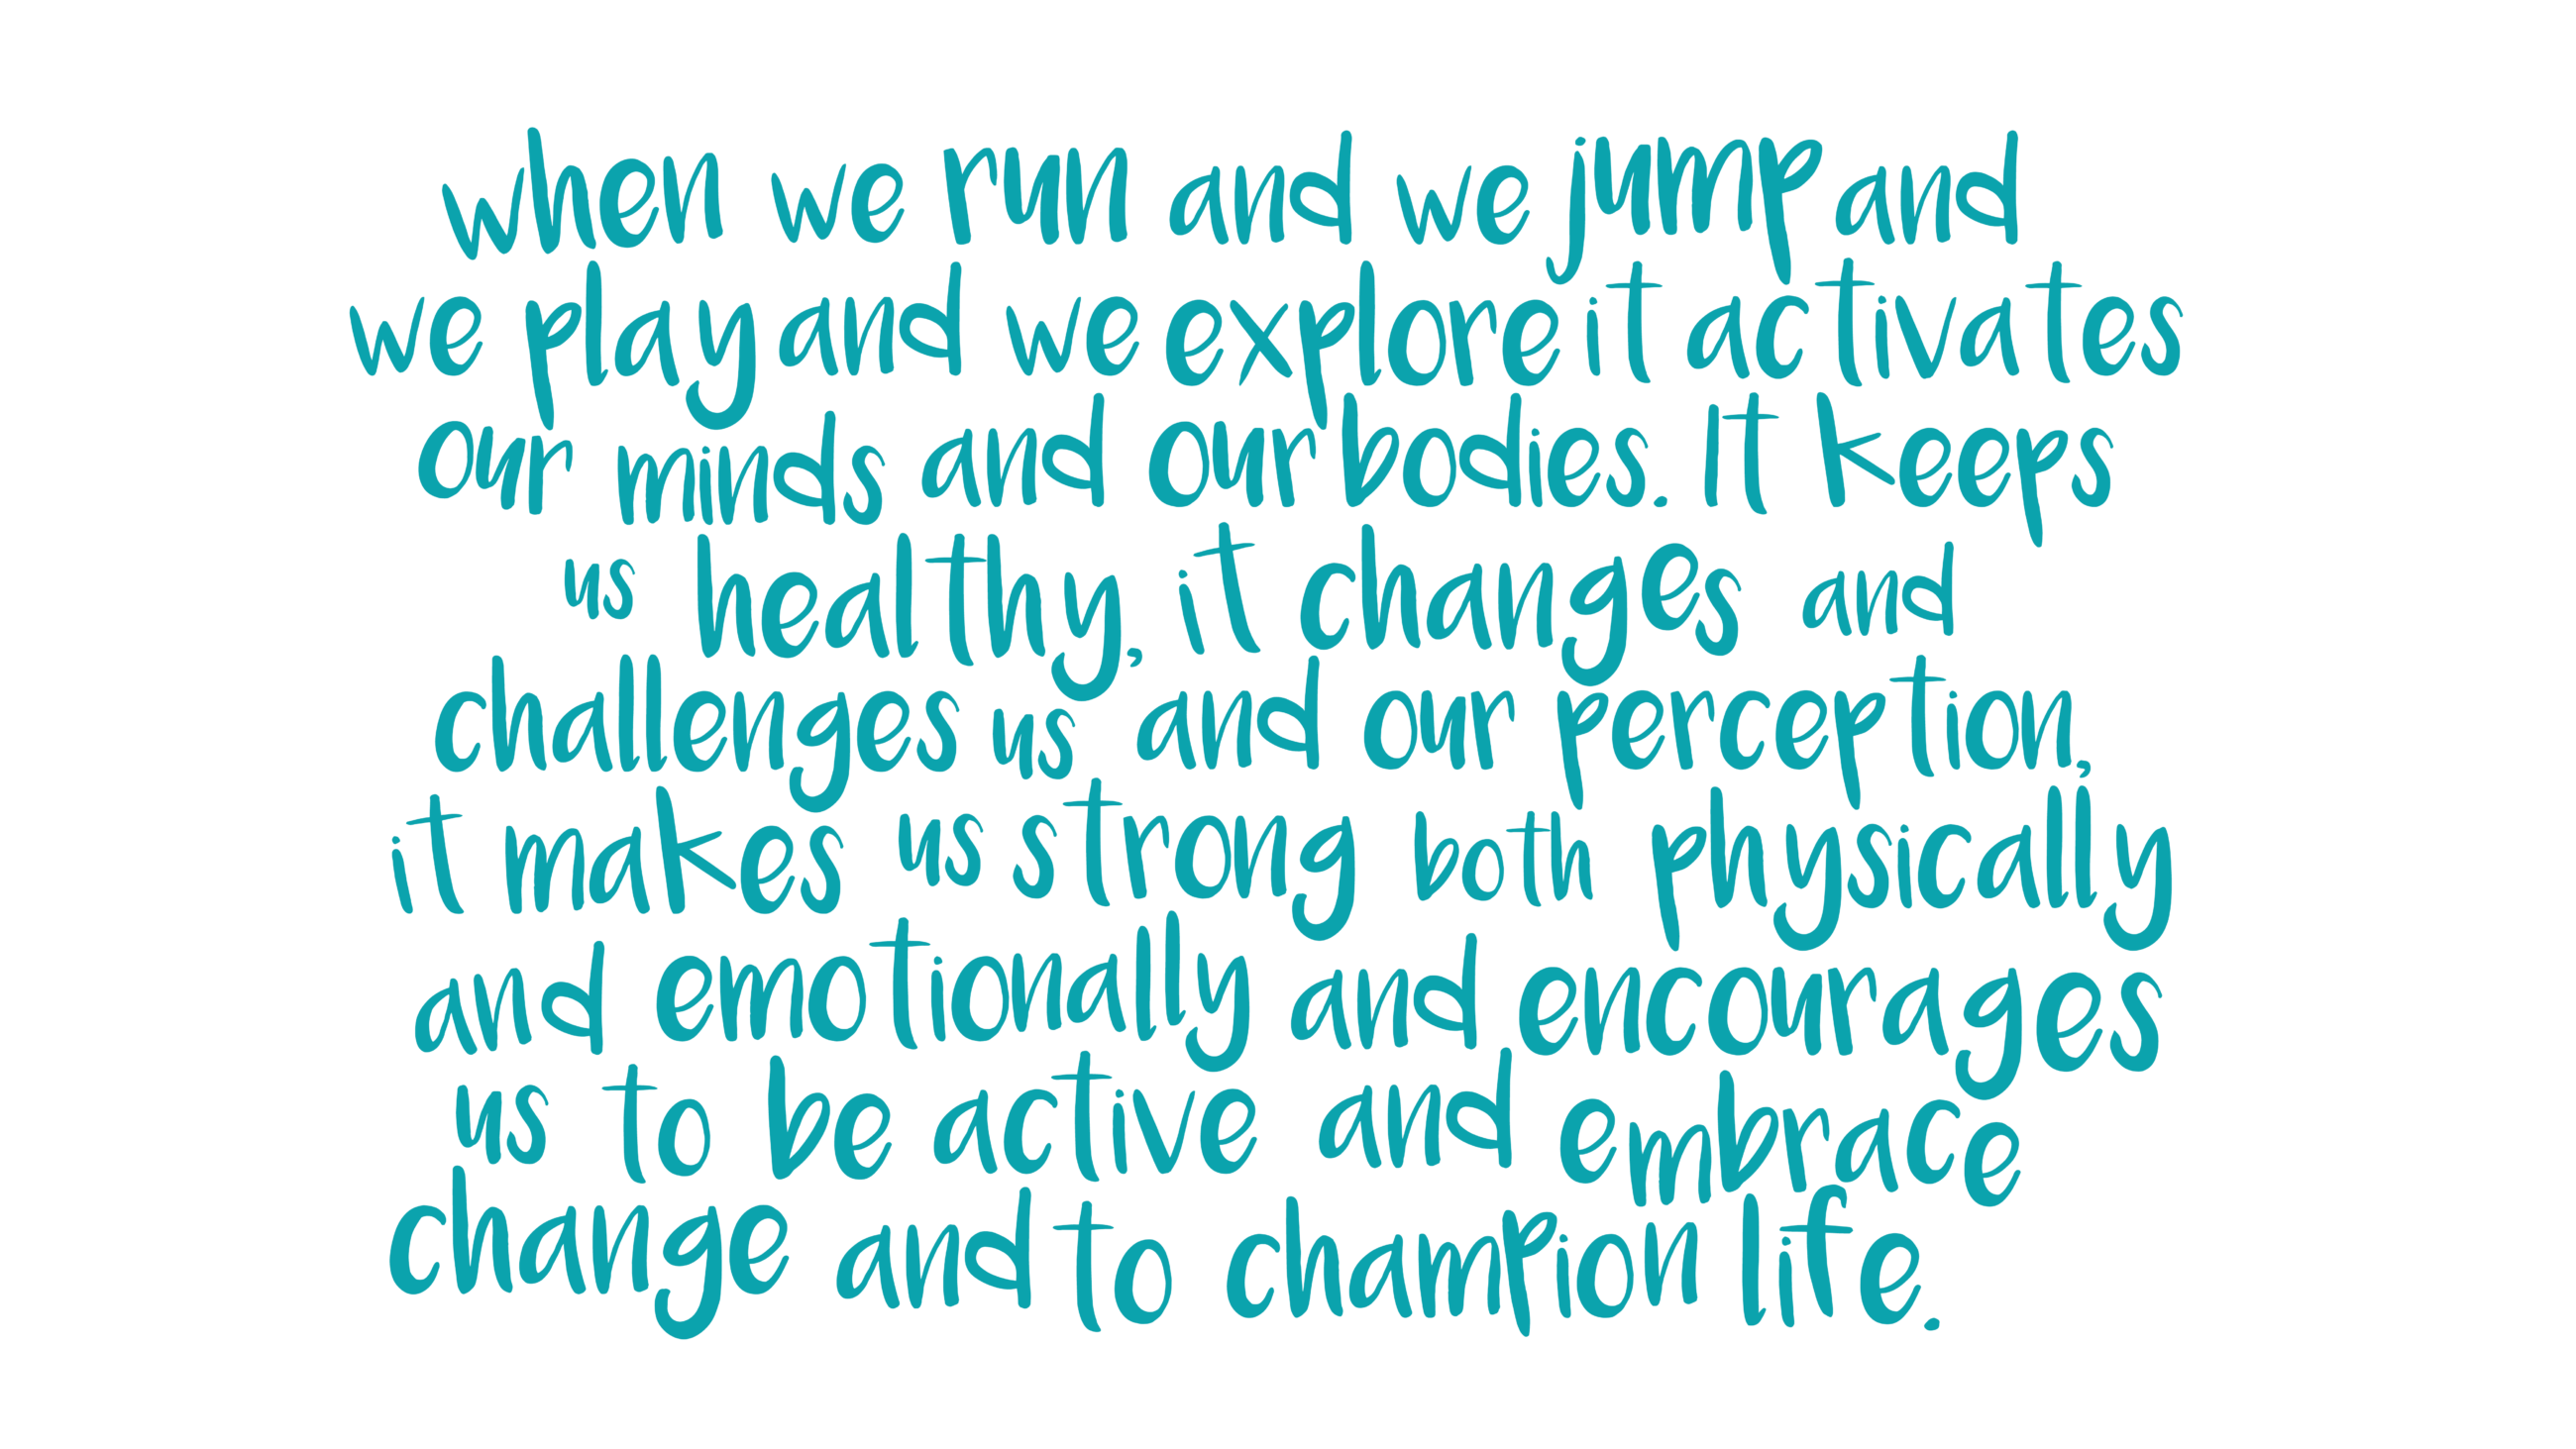 when we run and we jump and
we play and we explore it activates
our minds and our bodies. It keeps
us healthy, it changes and
challenges us and our perception,
it makes us strong both physically
and emotionally and encourages
us to be active and embrace
change and to champion life.